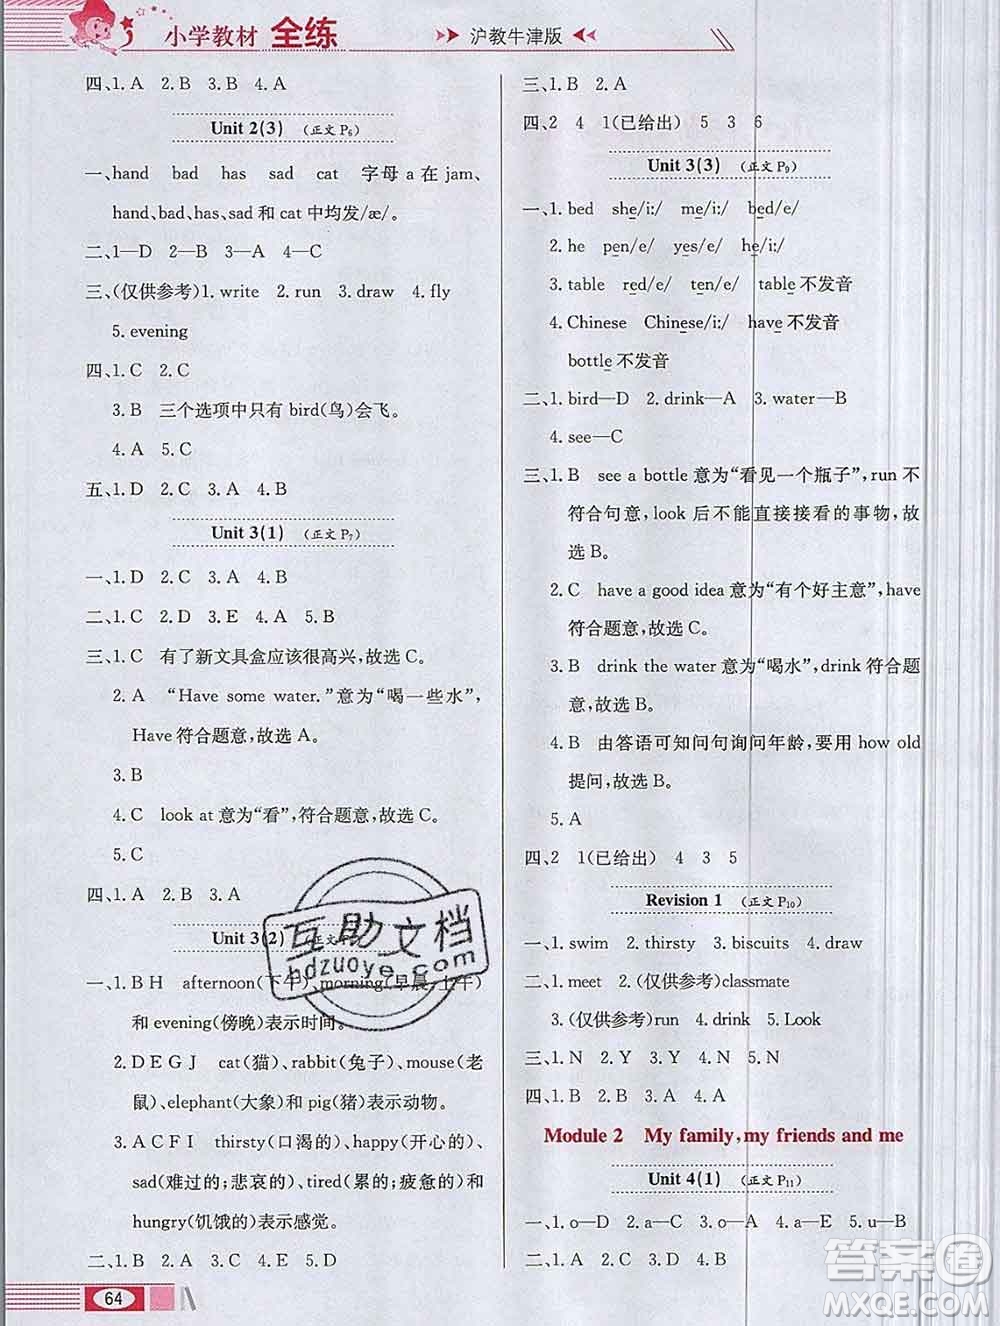 小学教材 全练
沪教牛津版
四、1. A 2. B 3. B 4. A
Unit 2(3) (正文 P6)
一、hand bad has sad cat 字母 a 在 jam、
hand、bad、has、sad 和 cat 中均发/æ/。
二、1—D 2—B 3—A 4—C
三、(仅供参考)1. write 2. run 3. draw 4. fly
5. evening
四、1. C 2. C
3. B 三个选项中只有 bird(鸟)会飞。
4. A 5. C
五、1. D 2. C 3. A 4. B
Unit 3(1) (正文 P7)
一、1. D 2. C 3. A 4. B
二、1. C 2. D 3. E 4. A 5. B
三、1. C 有了新文具盒应该很高兴,故选 C。
2. A “Have some water.”意为“喝一些水”,
Have 符合题意,故选 A。
3. B
4. C look at 意为“看”,符合题意,故选 C。
5. C
四、1. A 2. B 3. A
Unit 3(2) (正文
一、1. B H afternoon(下午)、morning(早晨;上午)
和 evening(傍晚)表示时间。
2. D E G J cat(猫)、rabbit(兔子)、mouse(老
鼠)、elephant(大象)和 pig(猪)表示动物。
3. A C F I thirsty(口渴的)、happy(开心的)、
sad(难过的;悲哀的)、tired(累的;疲惫的)和
hungry(饥饿的)表示感觉。
二、1. B 2. A 3. C 4. A 5. B
64
三、1. B 2. A
四、2 4 1(已给出) 5 3 6
Unit 3(3) (正文 P9)
一、1. bed she/i:/ me/i:/ bed/e/
2. he pen/e/ yes/e/ he/i:/
3. table red/e/ ten/e/ table 不发音
4. Chinese Chinese/i:/ have 不发音
bottle 不发音
二、1. bird—D 2. drink—A 3. water—B
4. see—C
三、1. B see a bottle 意为“看见一个瓶子”,run 不
符合句意,look 后不能直接接看的事物,故
选 B。
2. C have a good idea 意为“有个好主意”,have
符合题意,故选 C。
3. B drink the water 意为“喝水”,drink 符合题
意,故选 B。
4. B 由答语可知问句询问年龄,要用 how old
提问,故选 B。
5. A
四、2 1(已给出) 4 3 5
Revision 1 (正文 P10)
一、1. swim 2. thirsty 3. biscuits 4. draw
二、1. meet 2. (仅供参考)classmate
3. (仅供参考)run 4. drink 5. Look
三、1. N 2. Y 3. Y 4. N 5. N
四、1. B 2. B 3. A 4. B 5. A
Module 2 My family, my friends and me
Unit 4(1) (正文 P11)
一、1. o—D 2. a—C 3. i—A 4. u—B
二、1. A 2. C 3. D 4. B
互助文档
hdzuoye.com
答案圈
MXQE.COM